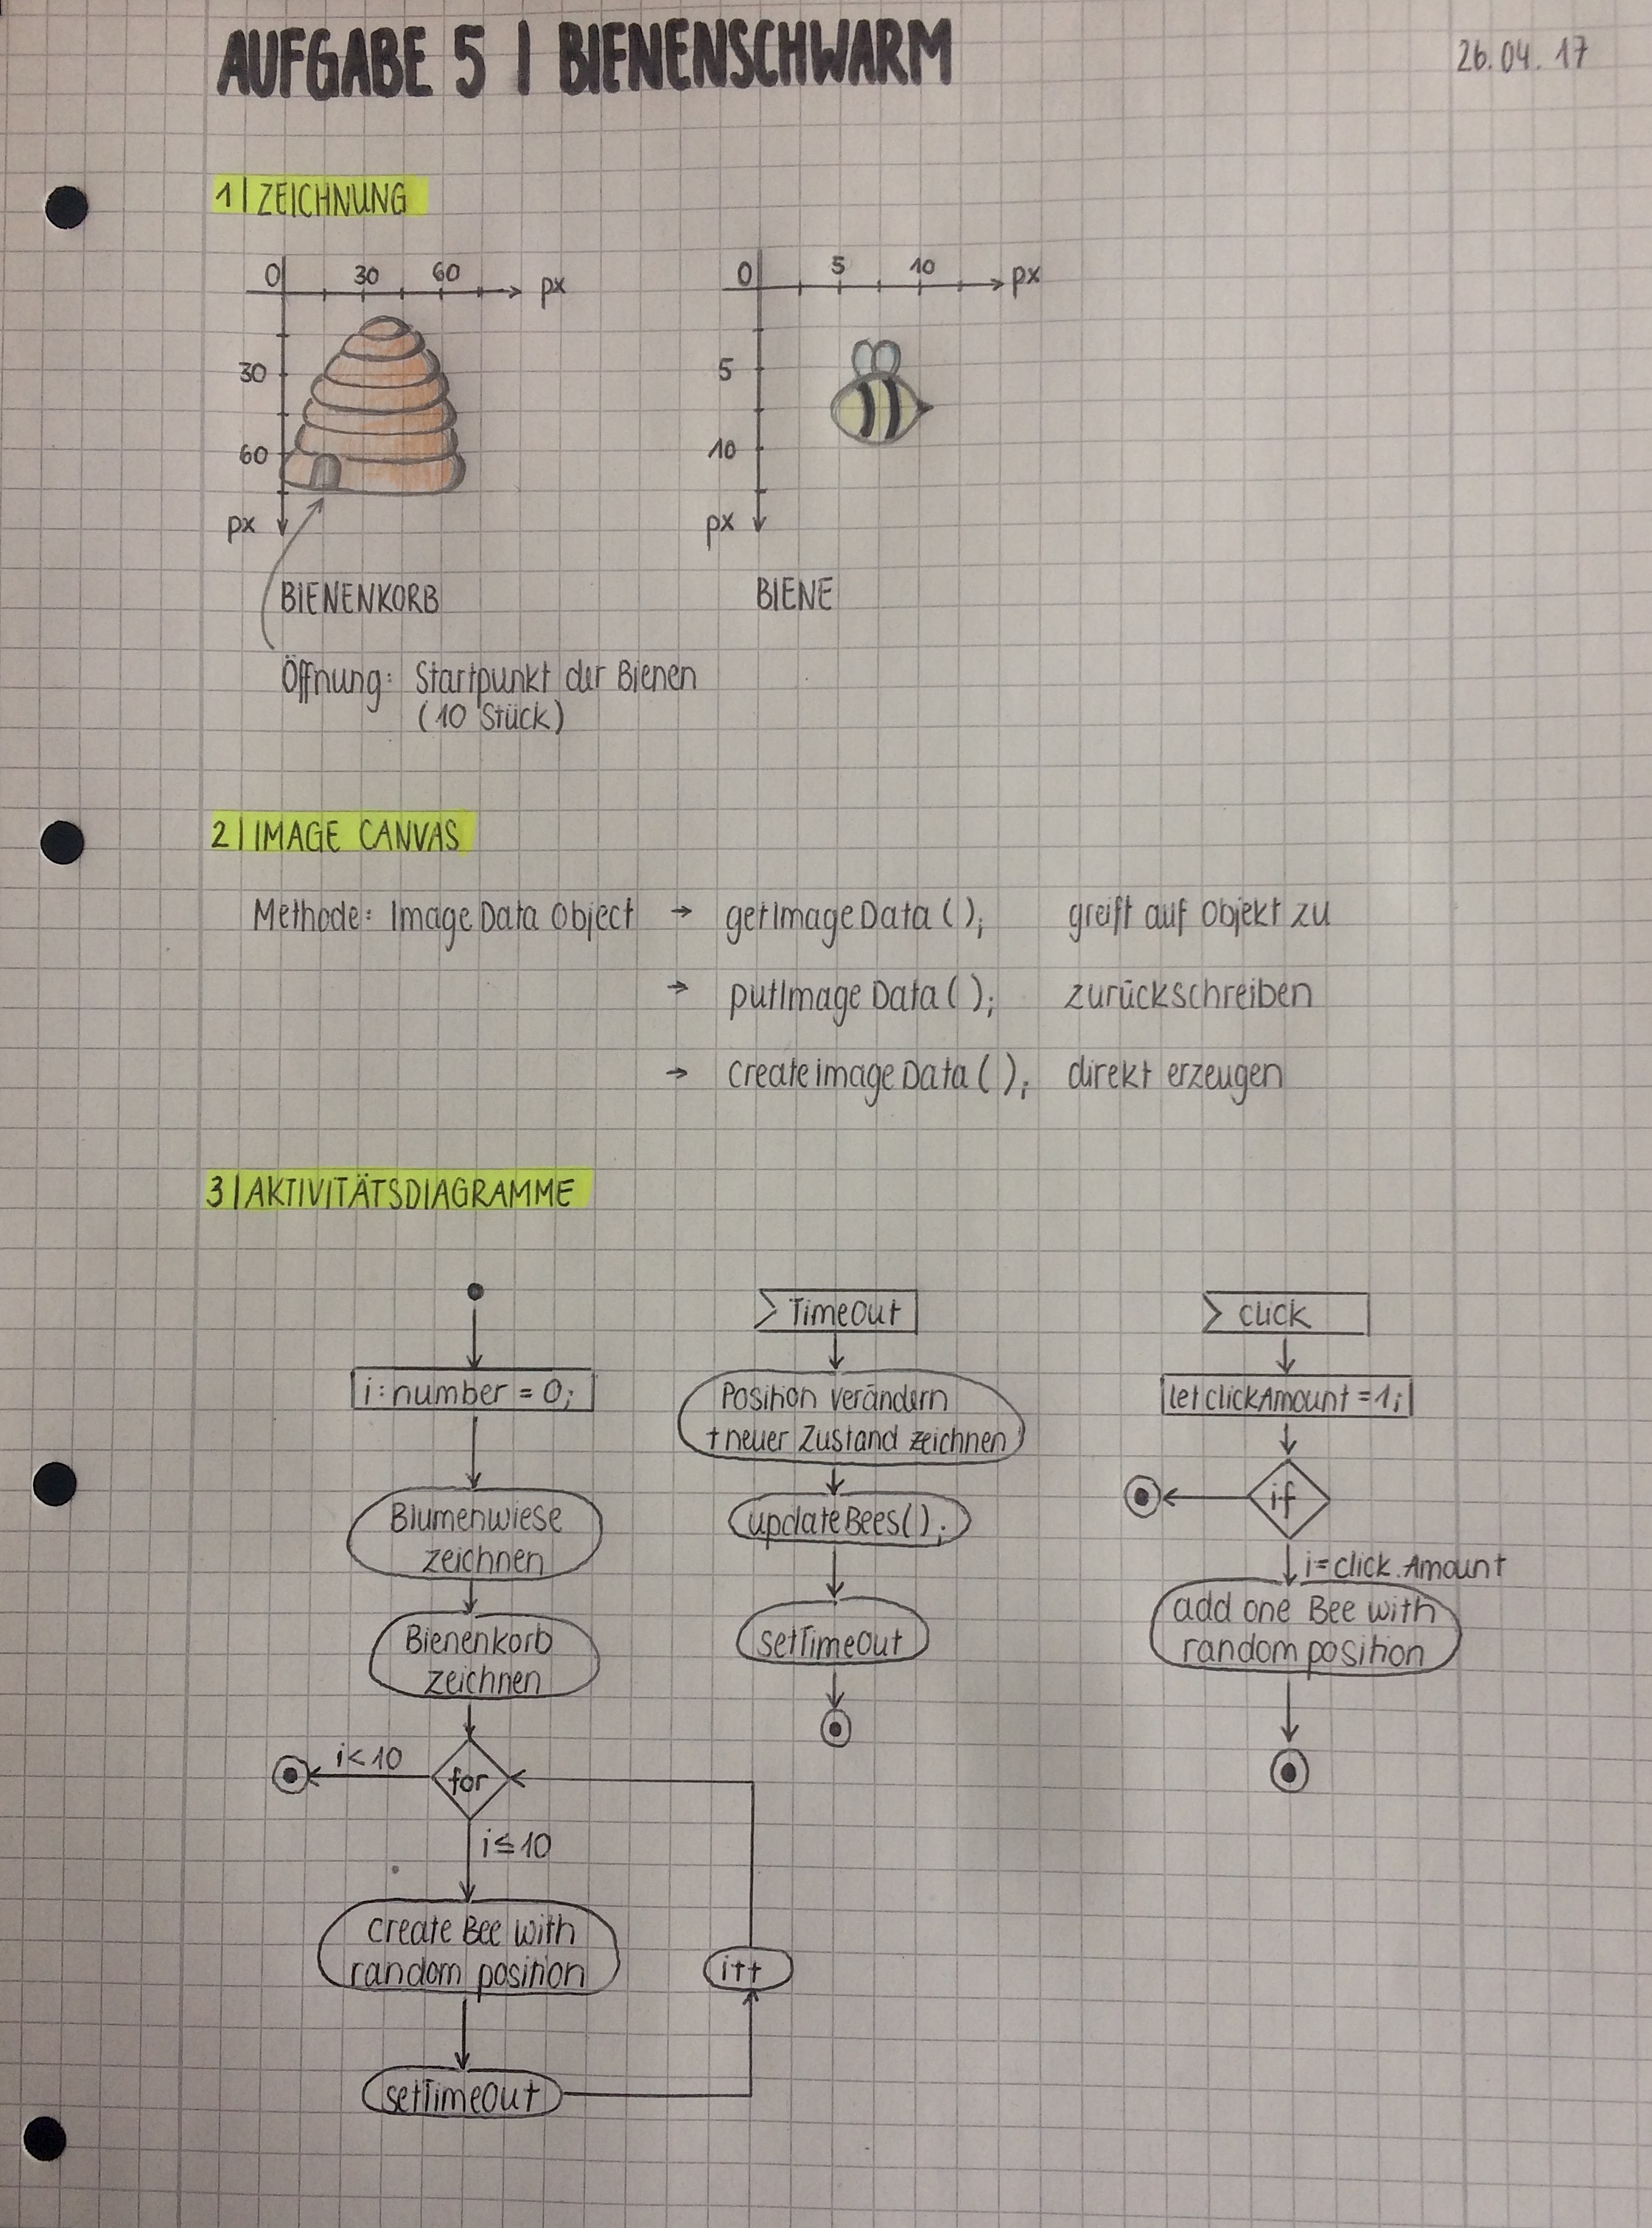 AUFGABE 5 | BIENENSCHWARM
26.04.17
1 | ZEICHNUNG
0 30 60 px
30
60
px
0 5 10 px
5
10
px
BIENENKORB
BIENE
Öffnung: Startpunkt der Bienen
(10 Stück)
2 | IMAGE CANVAS
Methode: Image Data Object → getImageData(); greift auf Objekt zu
→ putImage Data(); zurückschreiben
→ createimageData(); direkt erzeugen
3 | AKTIVITÄTSDIAGRAMME
i: number = 0;
Blumenwiese
zeichnen
Bienenkorb
zeichnen
for
i<10
i≤10
create Bee with
random position
setTimeOut
i++
TimeOut
Position verändern
+ neuer Zustand zeichnen
updateBees();
setTimeOut
click
let clickAmount = 1;
if
i=click.Amount
add one Bee with
random position